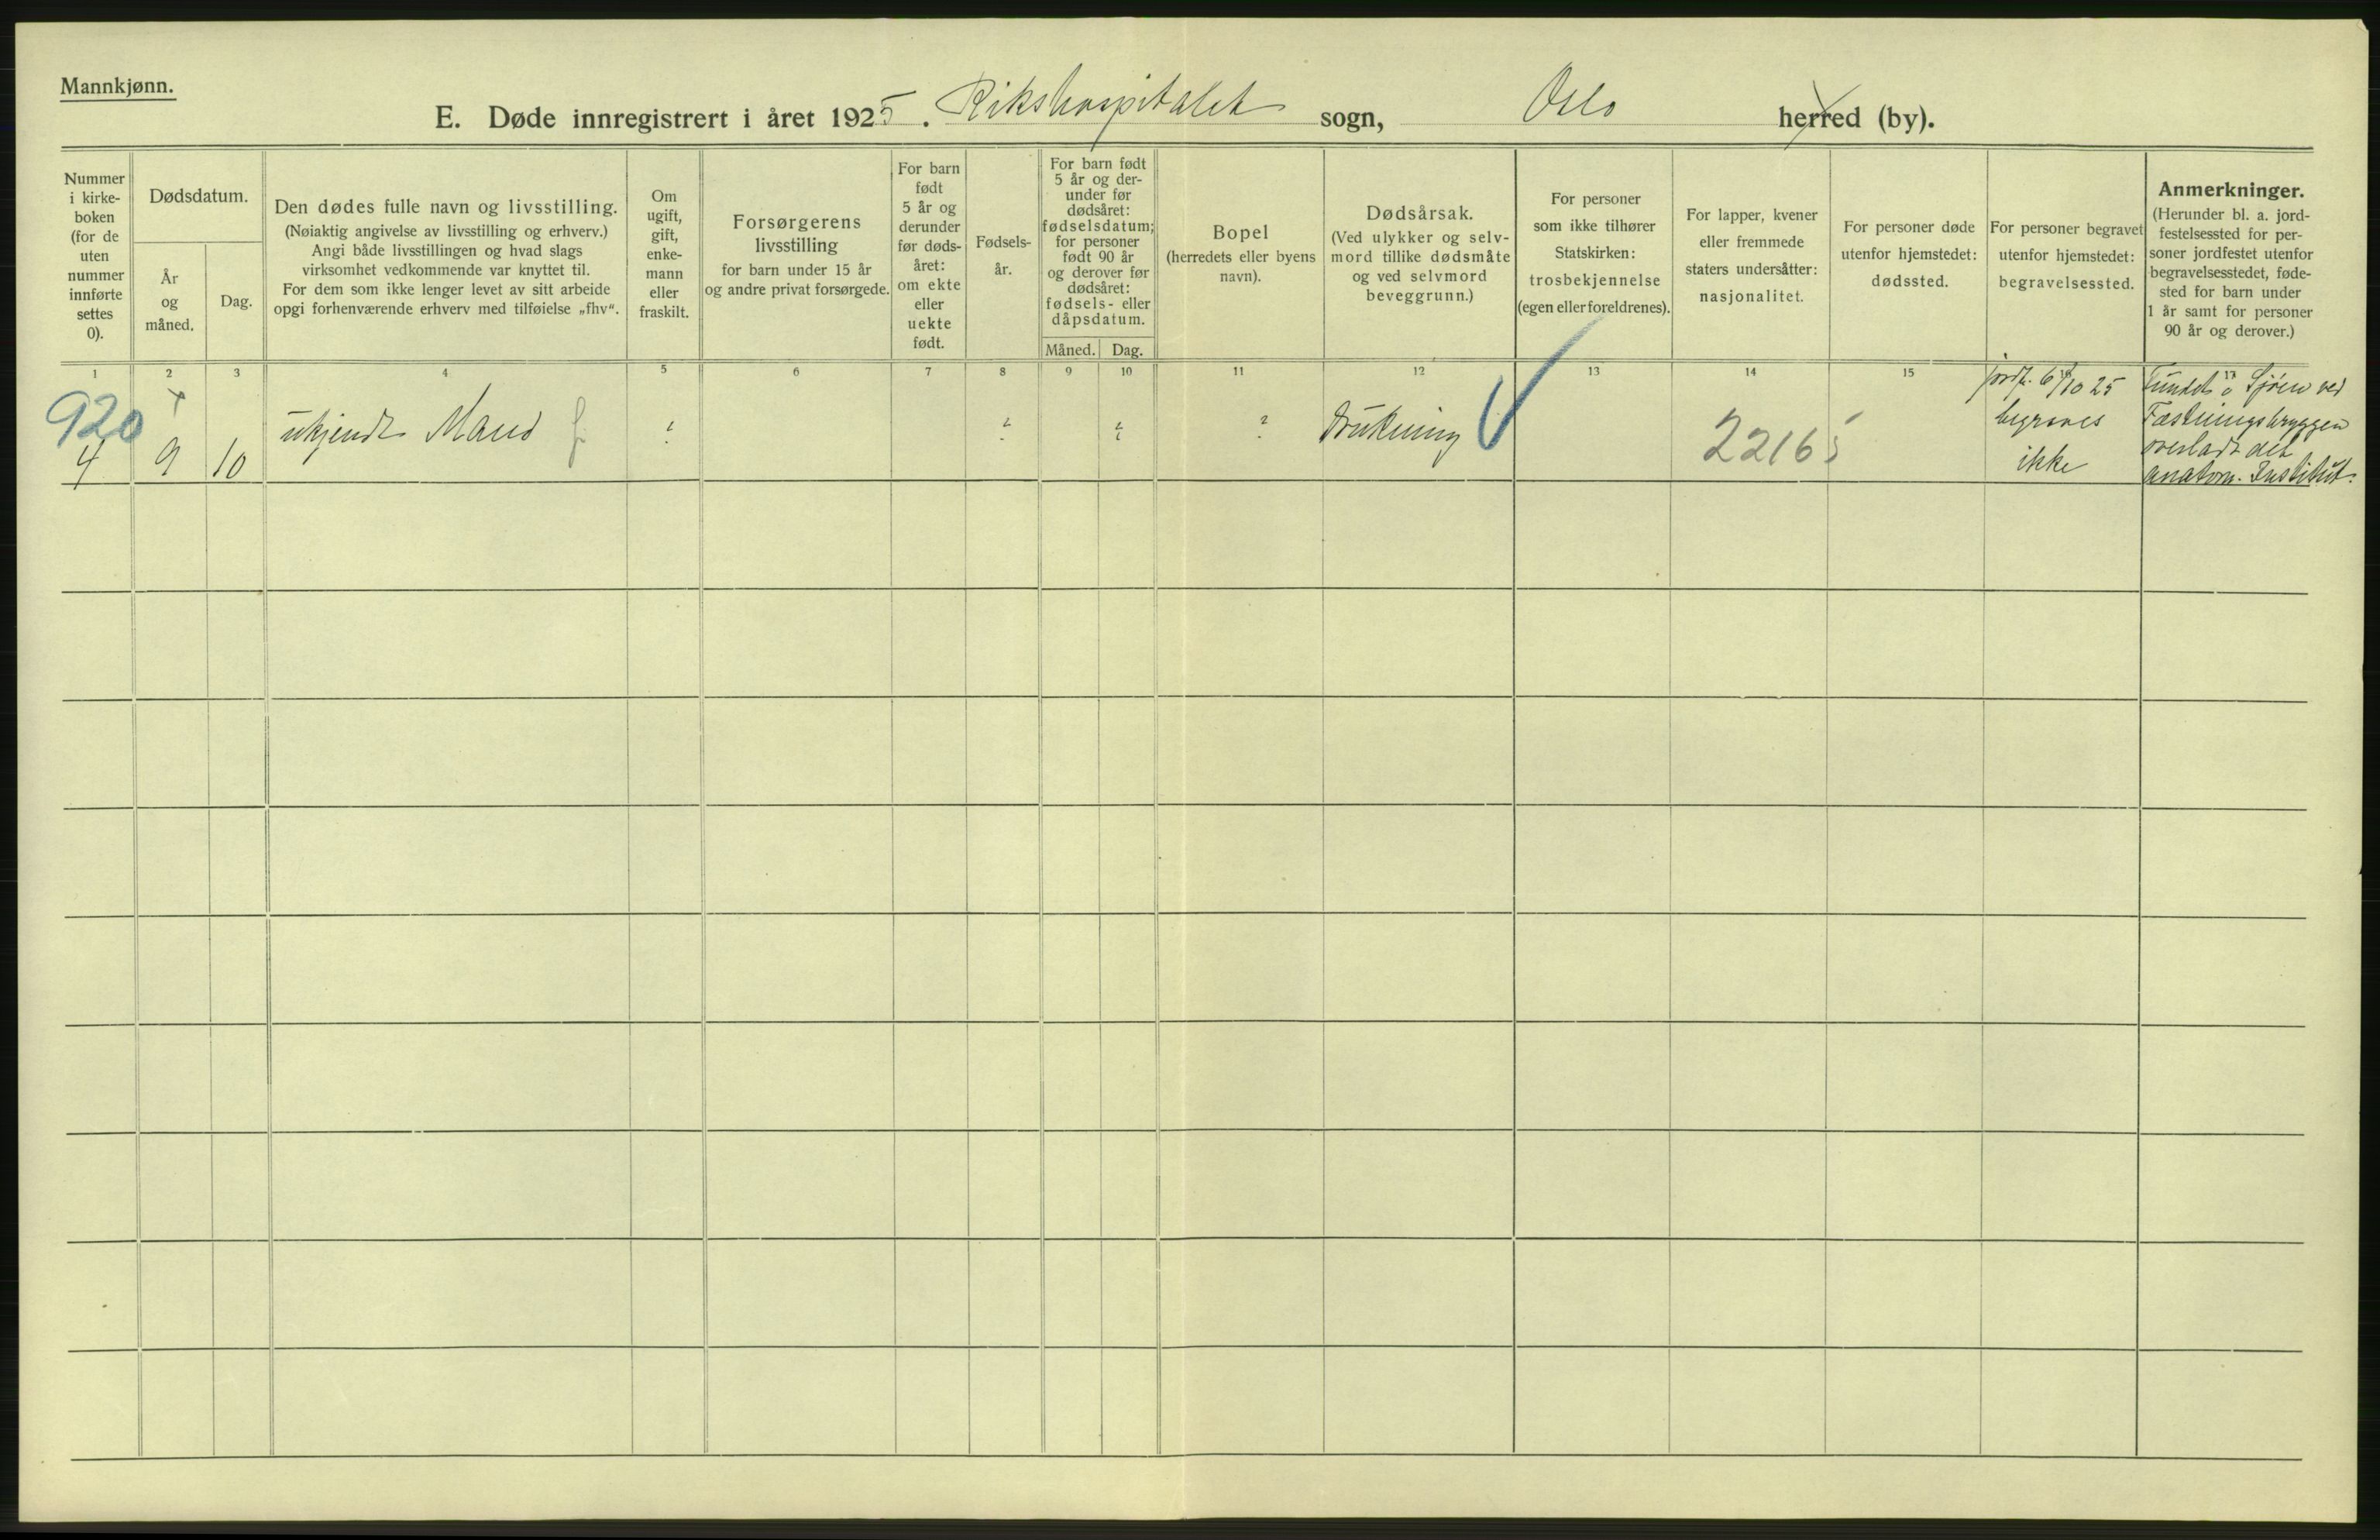 Mannkjønn.
E. Døde innregistrert i året 1925. Rikshospitalet sogn, Oslo herred (by).
Nummer
i kirke-
boken
(for de
uten
nummer
innførte
settes
0).
Dødsdatum.
År
og
måned.
Dag.
Den dødes fulle navn og livsstilling.
(Nøiaktig angivelse av livsstilling og erhverv.)
Angi både livsstillingen og hvad slags
virksomhet vedkommende var knyttet til.
For dem som ikke lenger levet av sitt arbeide
opgi forhenværende erhverv med tilføielse „fhv“.
Om
ugift,
gift,
enke-
mann
eller
fraskilt.
Forsørgerens
livsstilling
for barn under 15 år
og andre privat forsørgede.
For barn
født
5 år og
derunder
før døds-
året:
om ekte
eller
uekte
født.
Fødsels-
år.
For barn født
5 år og der-
under før
dødsåret:
fødselsdatum;
for personer
født 90 år
og derover før
dødsåret:
fødsels- eller
dåpsdatum.
Måned. Dag.
Bopel
(herredets eller byens
navn).
Dødsårsak.
(Ved ulykker og selv-
mord tillike dødsmåte
og ved selvmord
beveggrunn.)
For personer
som ikke tilhører
Statskirken:
trosbekjennelse
(egen eller foreldrenes).
For lapper, kvener
eller fremmede
staters undersåtter:
nasjonalitet.
For personer døde
utenfor hjemstedet:
dødssted.
For personer begravet
utenfor hjemstedet:
begravelsessted.
Anmerkninger.
(Herunder bl. a. jord-
festelsessted for per-
soner jordfestet utenfor
begravelsesstedet, føde-
sted for barn under
1 år samt for personer
90 år og derover.)
1 2 3 4 5 6 7 8 9 10 11 12 13 14 15 16 17
920
4 9 10 ukjendt Mand ? ? ? ? Drukning 22165
jordf. 6/10 25
begraves
ikke
Fundet i Sjøen ved
Fæstningsbryggen
overladt det
anatom. Institut.